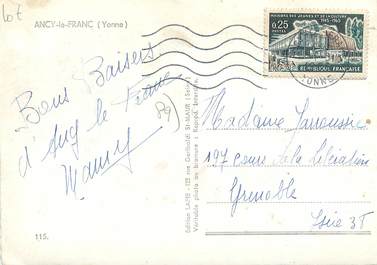 lot
ANCY-le-FRANC (Yonne)
MAISONS DES JEUNES ET DE LA CULTURE
1945-1965
0,25
POSTES
REPUBLIQUE FRANÇAISE
YONNE
Bons Baisers
d'Ancy le Franc
89
Madame
197 cours de la libération
Grenoble
Isère 38
115.
Edition LAPIE - 123 rue Garibaldi St-MAUR (Seine)
Véritable photo au bromure - Reprod. interdite